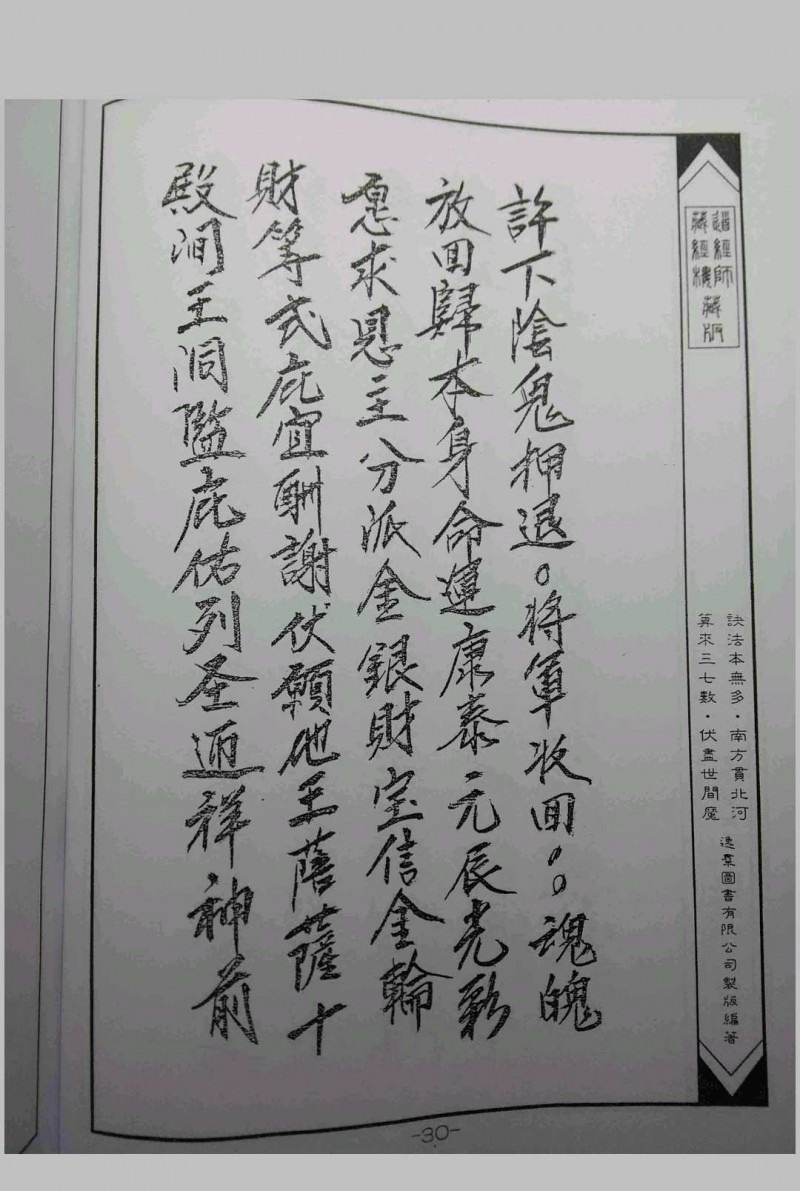 道經師藏版
藏經樓
訣法本無多・南方貫北河
算來三七數・伏盡世間魔
逸羣圖書有限公司製版編著
許下陰鬼押退。將軍收回。。魂魄
放回歸本身命運康泰元辰光彩
恳求恩主分派金銀財宝信金輪
財等式庇宜酬謝伏願地王菩薩十
殿阎王洞監庇佑列圣迊祥神前
-30-